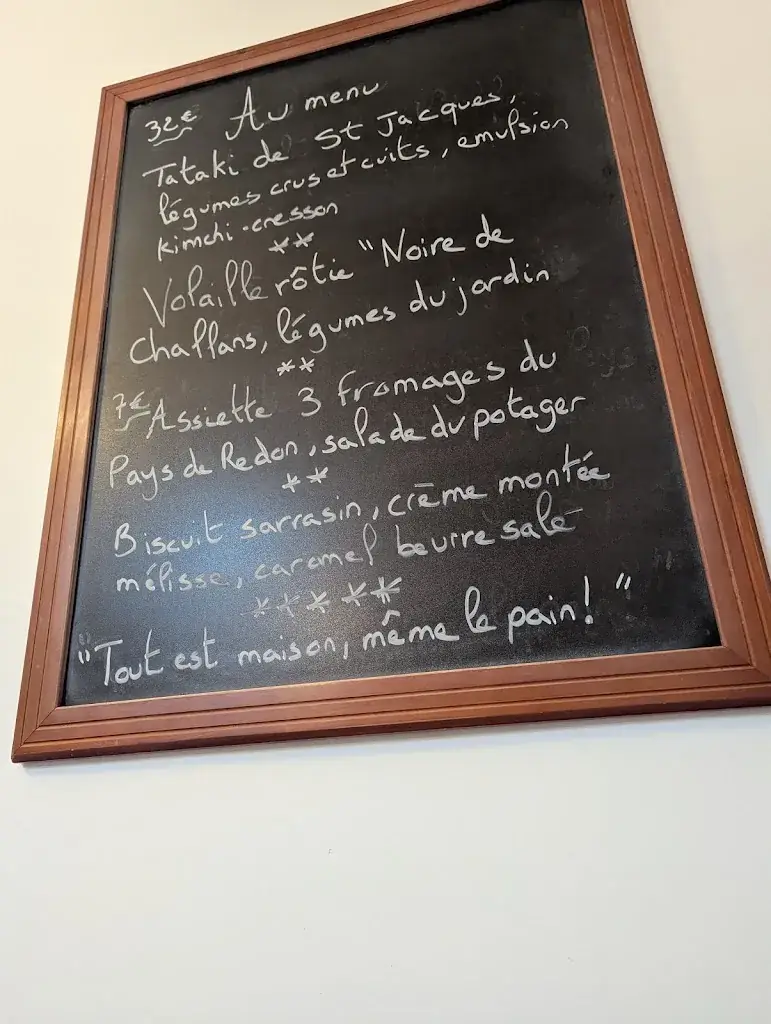 32€ Au menu
Tataki de St Jacques,
légumes crus et cuits, emulsion
kimchi-cresson
**
Volaille rôtie "Noire de
Challans, légumes du jardin
**
7€ Assiette 3 fromages du
Pays de Redon, salade du potager
**
Biscuit sarrasin, crème montée
mélisse, caramel beurre salé
*****
"Tout est maison, même le pain! "